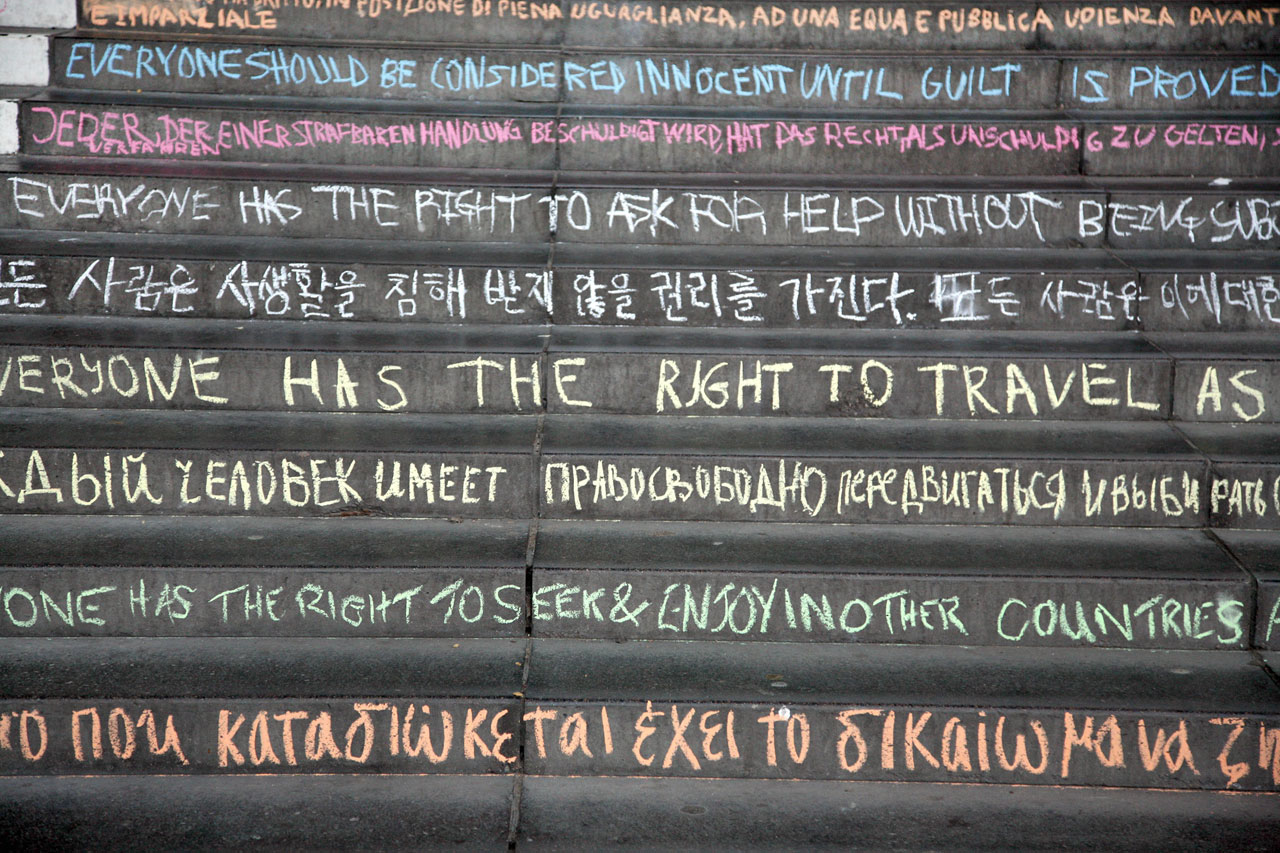 IN POSIZIONE DI PIENA UGUAGLIANZA, AD UNA EQUA E PUBBLICA UDIENZA DAVANT
E IMPARZIALE
EVERYONE SHOULD BE CONSIDERED INNOCENT UNTIL GUILT IS PROVED
JEDER, DER EINER STRAFBAREN HANDLUNG BESCHULDIGT WIRD, HAT DAS RECHT, ALS UNSCHULDIG ZU GELTEN,
VERFAHREN
EVERYONE HAS THE RIGHT TO ASK FOR HELP WITHOUT BEING
든 사람은 사생활을 침해 받지 않을 권리를 가진다. 모든 사람은 이에대한
VERYONE HAS THE RIGHT TO TRAVEL AS
ЖДЫЙ ЧЕЛОВЕК ИМЕЕТ ПРАВО СВОБОДНО ПЕРЕДВИГАТЬСЯ И ВЫБИРАТЬ
YONE HAS THE RIGHT TO SEEK & ENJOY IN OTHER COUNTRIES
που καταδιώκεται έχει το δικαίωμα να ζη